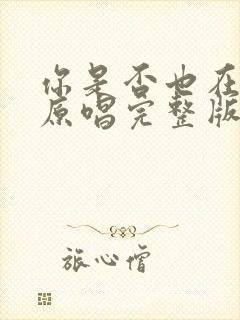 你是否也在
原唱完整版
旅心僧